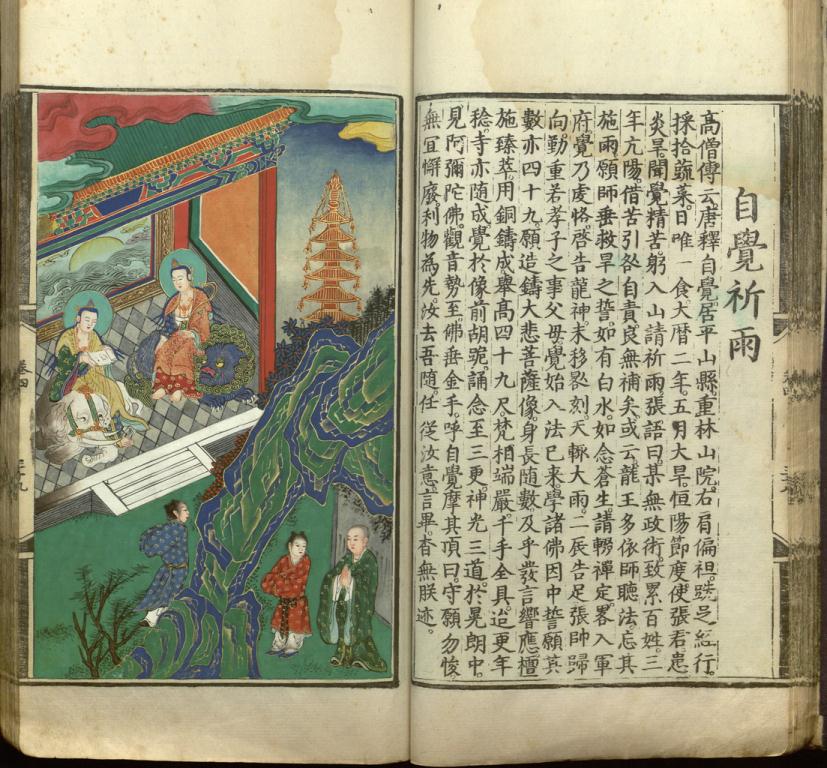 自覺祈雨
高僧傳云唐釋自覺居平山縣重林山院右肩偏袒跣足經行
採拾蔬菜日唯一食大曆二年五月大旱恒陽節度使張君患
炎旱聞覺精苦躬入山請祈雨張語曰某無政術致累百姓三
年亢陽借苦引咎自責良無補矣或云龍王多依師聽法忘其
施雨願師垂救旱之誓如有白水如念蒼生請輟禪定畧入軍
府覺乃虔恪啓告龍神未移晷刻天輙大雨二辰告足張帥歸
向勤重若孝子之事父母覺始入法已来學諸佛因中誓願其
數亦四十九願造鑄大悲菩薩像身長隨數及乎發言響應檀
施臻萃用銅鑄成舉高四十九尺梵相端嚴千手全具迨更年
稔寺亦随成覺於像前胡跪誦念至三更神光三道於晃朗中
見阿彌陀佛觀音勢至佛垂金手呼自覺摩其頂曰守願勿悛
無宜懈廢利物為先汝去吾隨任從汝意言畢杳無朕迹
卷四